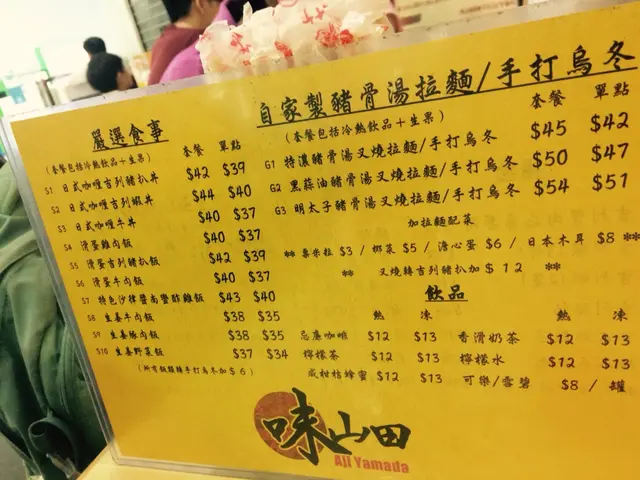 嚴選食事
(套餐包括冷熱飲品+生果) 套餐 單點
S1 日式咖喱吉列豬扒丼 $42 $39
S2 日式咖喱吉列蝦丼 $44 $40
S3 日式咖喱牛丼 $40 $37
S4 滑蛋雞肉飯 $40 $37
S5 滑蛋吉列豬扒飯 $42 $39
S6 滑蛋牛肉飯 $40 $37
S7 特色沙律醬南蠻酢雞飯 $43 $40
S8 生姜牛肉飯 $38 $35
S9 生姜豚肉飯 $38 $35
S10 生姜野菜飯 $37 $34
(所有飯類轉手打烏冬加$6)
自家製豬骨湯拉麵/手打烏冬
(套餐包括冷熱飲品+生果) 套餐 單點
G1 特濃豬骨湯叉燒拉麵/手打烏冬 $45 $42
G2 黑蒜油豬骨湯叉燒拉麵/手打烏冬 $50 $47
G3 明太子豬骨湯叉燒拉麵/手打烏冬 $54 $51
加拉麵配菜
** 粟米粒 $3 / 椰菜 $5 / 溏心蛋 $6 / 日本木耳 $8 **
** 叉燒轉吉列豬扒加$12 **
飲品
熱 凍 熱 凍
忌廉咖啡 $12 $13 香滑奶茶 $12 $13
檸檬茶 $12 $13 檸檬水 $12 $13
咸柑桔蜂蜜 $12 $13 可樂/雪碧 $8 / 罐
味山田
Aji Yamada